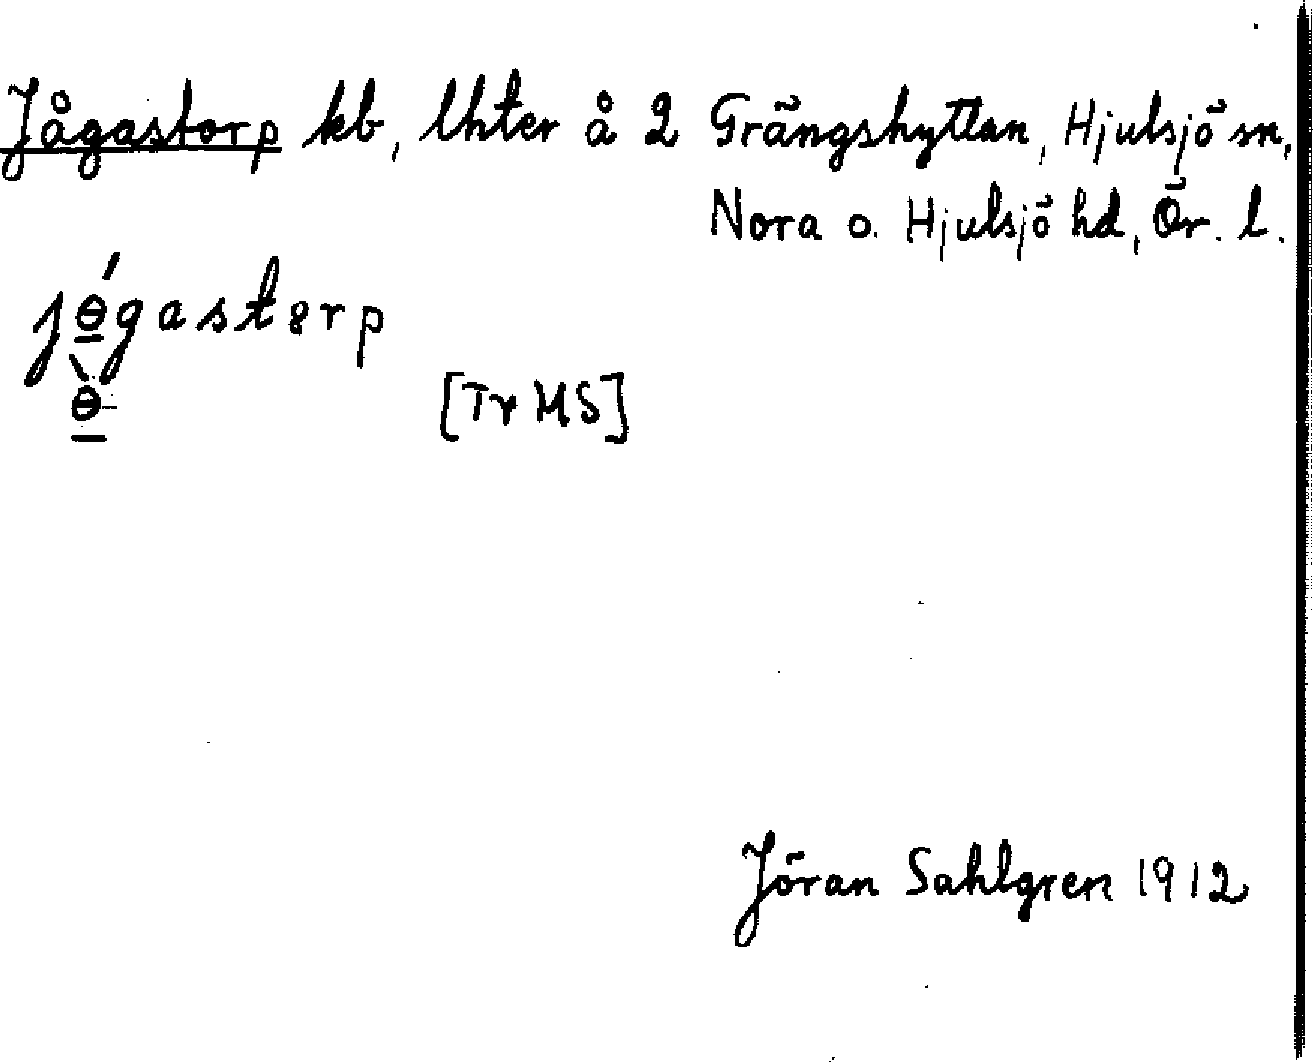 Jågastorp kb, lhter å 2 Grängshyttan, Hjulsjö sn,
Nora o. Hjulsjö hd, Ör. l.
jɵ́gastɵrp
ɵ̀
[Tr MS]
Jöran Sahlgren 1912